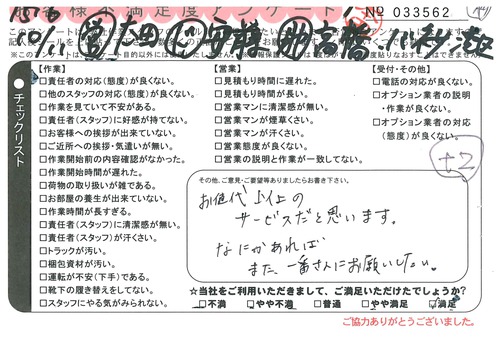 お客様不満足度アンケート
№ 033562
【作業】
□責任者の対応（態度）が良くない。
□他のスタッフの対応（態度）が良くない。
□作業を見ていて不安がある。
□責任者（スタッフ）に好感が持てない。
□お客様への挨拶が出来ていない。
□ご近所への挨拶・気遣いが無い。
□作業開始前の内容確認がなかった。
□作業開始時間が遅れた。
□荷物の取り扱いが雑である。
□お部屋の養生が出来ていない。
□作業時間が長すぎる。
□責任者（スタッフ）に清潔感が無い。
□責任者（スタッフ）が汗くさい。
□トラックが汚い。
□梱包資材が汚い。
□運転が不安（下手）である。
□靴下の履き替えをしてない。
□スタッフにやる気がみられない。
【営業】
□見積もり時間に遅れた。
□見積もり時間が長い。
□営業マンに清潔感が無い。
□営業マンが煙草くさい。
□営業マンが汗くさい。
□営業態度が良くない。
□営業の説明と作業が一致してない。
【受付・その他】
□電話の対応が良くない。
□オプション業者の説明・作業が良くない。
□オプション業者の対応（態度）が良くない。
チェックリスト
+2
その他、ご意見・ご要望等ありましたらお書き下さい。
お値代以上の
サービスだと思います。
なにかあれば
また一番さんにお願いしたい。
☆当社をご利用いただきまして、ご満足いただけたでしょうか？
□不満 □やや不満 □普通 □やや満足 □満足
ご協力ありがとうございました。